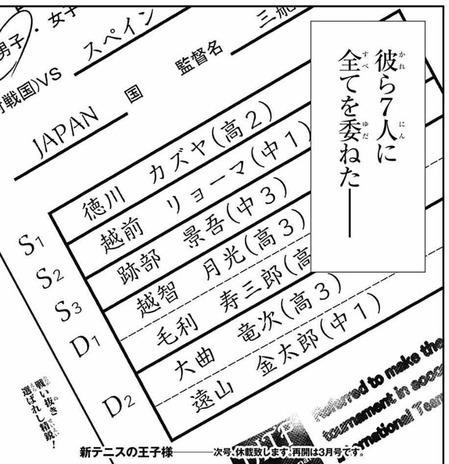 男子・女子
対戦国)VS
スペイン
監督名
三船
JAPAN 国
彼ら7人に
全てを委ねた――
S1 徳川 カズヤ(高2)
S2 越前 リョーマ(中1)
S3 跡部 景吾(中3)
D1 越智 月光(高3)
毛利 寿三郎(高
D2 大曲 竜次(高3)
遠山 金太郎(中1)
戦い抜き
選ばれし精鋭!
Referred to make the
tournament in
national Team
新テニスの王子様――次号、休載致します。再開は3月号です。